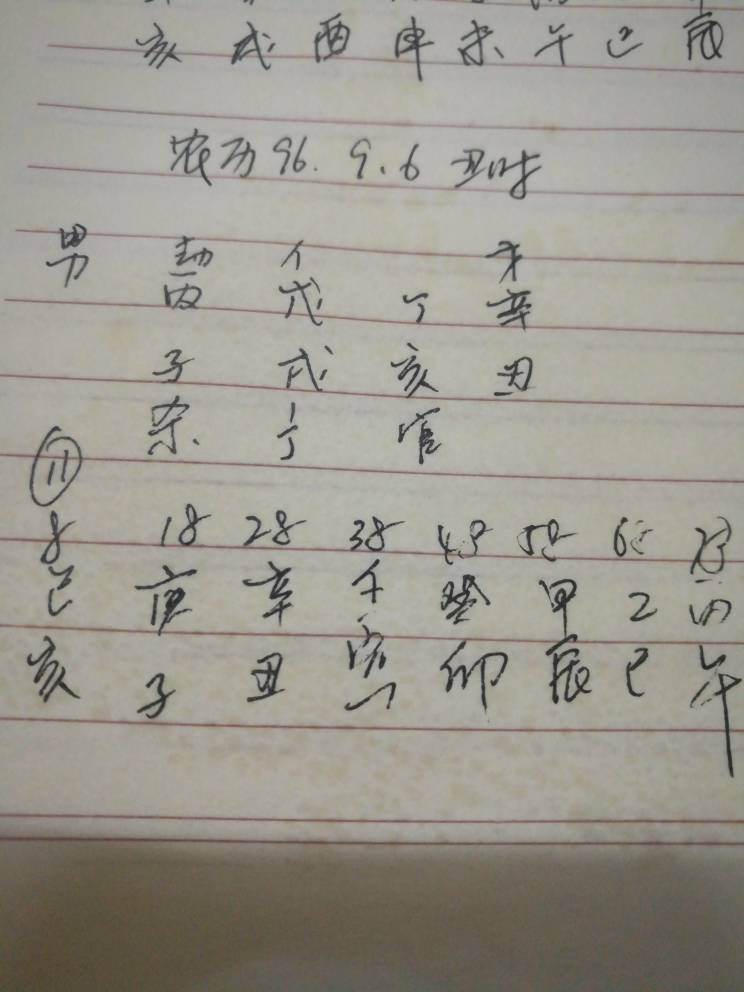 亥 戌 酉 申 未 午 巳 辰
农历96.9.6 丑时
男 劫 イ 才
丙 戊 丁 辛
子 戌 亥 丑
杀 官
11
8 18 28 38 48 58 68 78
己 庚 辛 壬 癸 甲 乙 丙
亥 子 丑 寅 卯 辰 巳 午